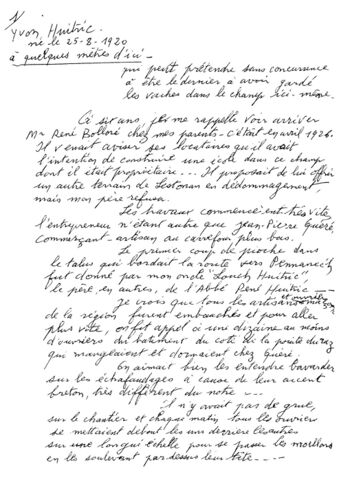 1/
Yvon Huitric.
né le 25-8-1920
à quelques mètres d'ici -
qui peut prétendre sans concurrence
à être le dernier à avoir gardé
les vaches dans le champ ici-même.
six ans, je me rappelle voir arriver
Mr René Bolloré chez mes parents - c'était en avril 1926.
Il venait aviser ses locataires qu'il avait
l'intention de construire une école dans ce champ
dont il était propriétaire... Il proposait de lui offrir
un autre terrain de Lestonan en dédommagement,
mais mon père refusa.
Les travaux commencèrent très vite
l'entrepreneur n'étant autre que Jean-Pierre Quéré,
Commerçant-artisan au carrefour plus bas.
Le premier coup de pioche dans
le talus qui bordait la route vers Pennanec'h
fut donné par mon oncle "Louch Huitric"
le père, en autres, de l'Abbé René Huitric -
Je crois que tous les artisans et ouvriers
de la région furent embauchés et pour aller
plus vite, on fit appel à une dizaine au moins
d'ouvriers du bâtiment du coté de la pointe du raz
qui mangeaient et dormaient chez Quéré.
On aimait bien les entendre bavarder
sur les échafaudages à cause de leur accent
breton, très différent du notre - - -
Il n'y avait pas de grue,
sur le chantier et chaque matin, tous les ouvriers
se mettaient debout les uns derrière les autres
sur une longue échelle pour se passer les moellons
en les soulevant par dessus leur tête - - - -